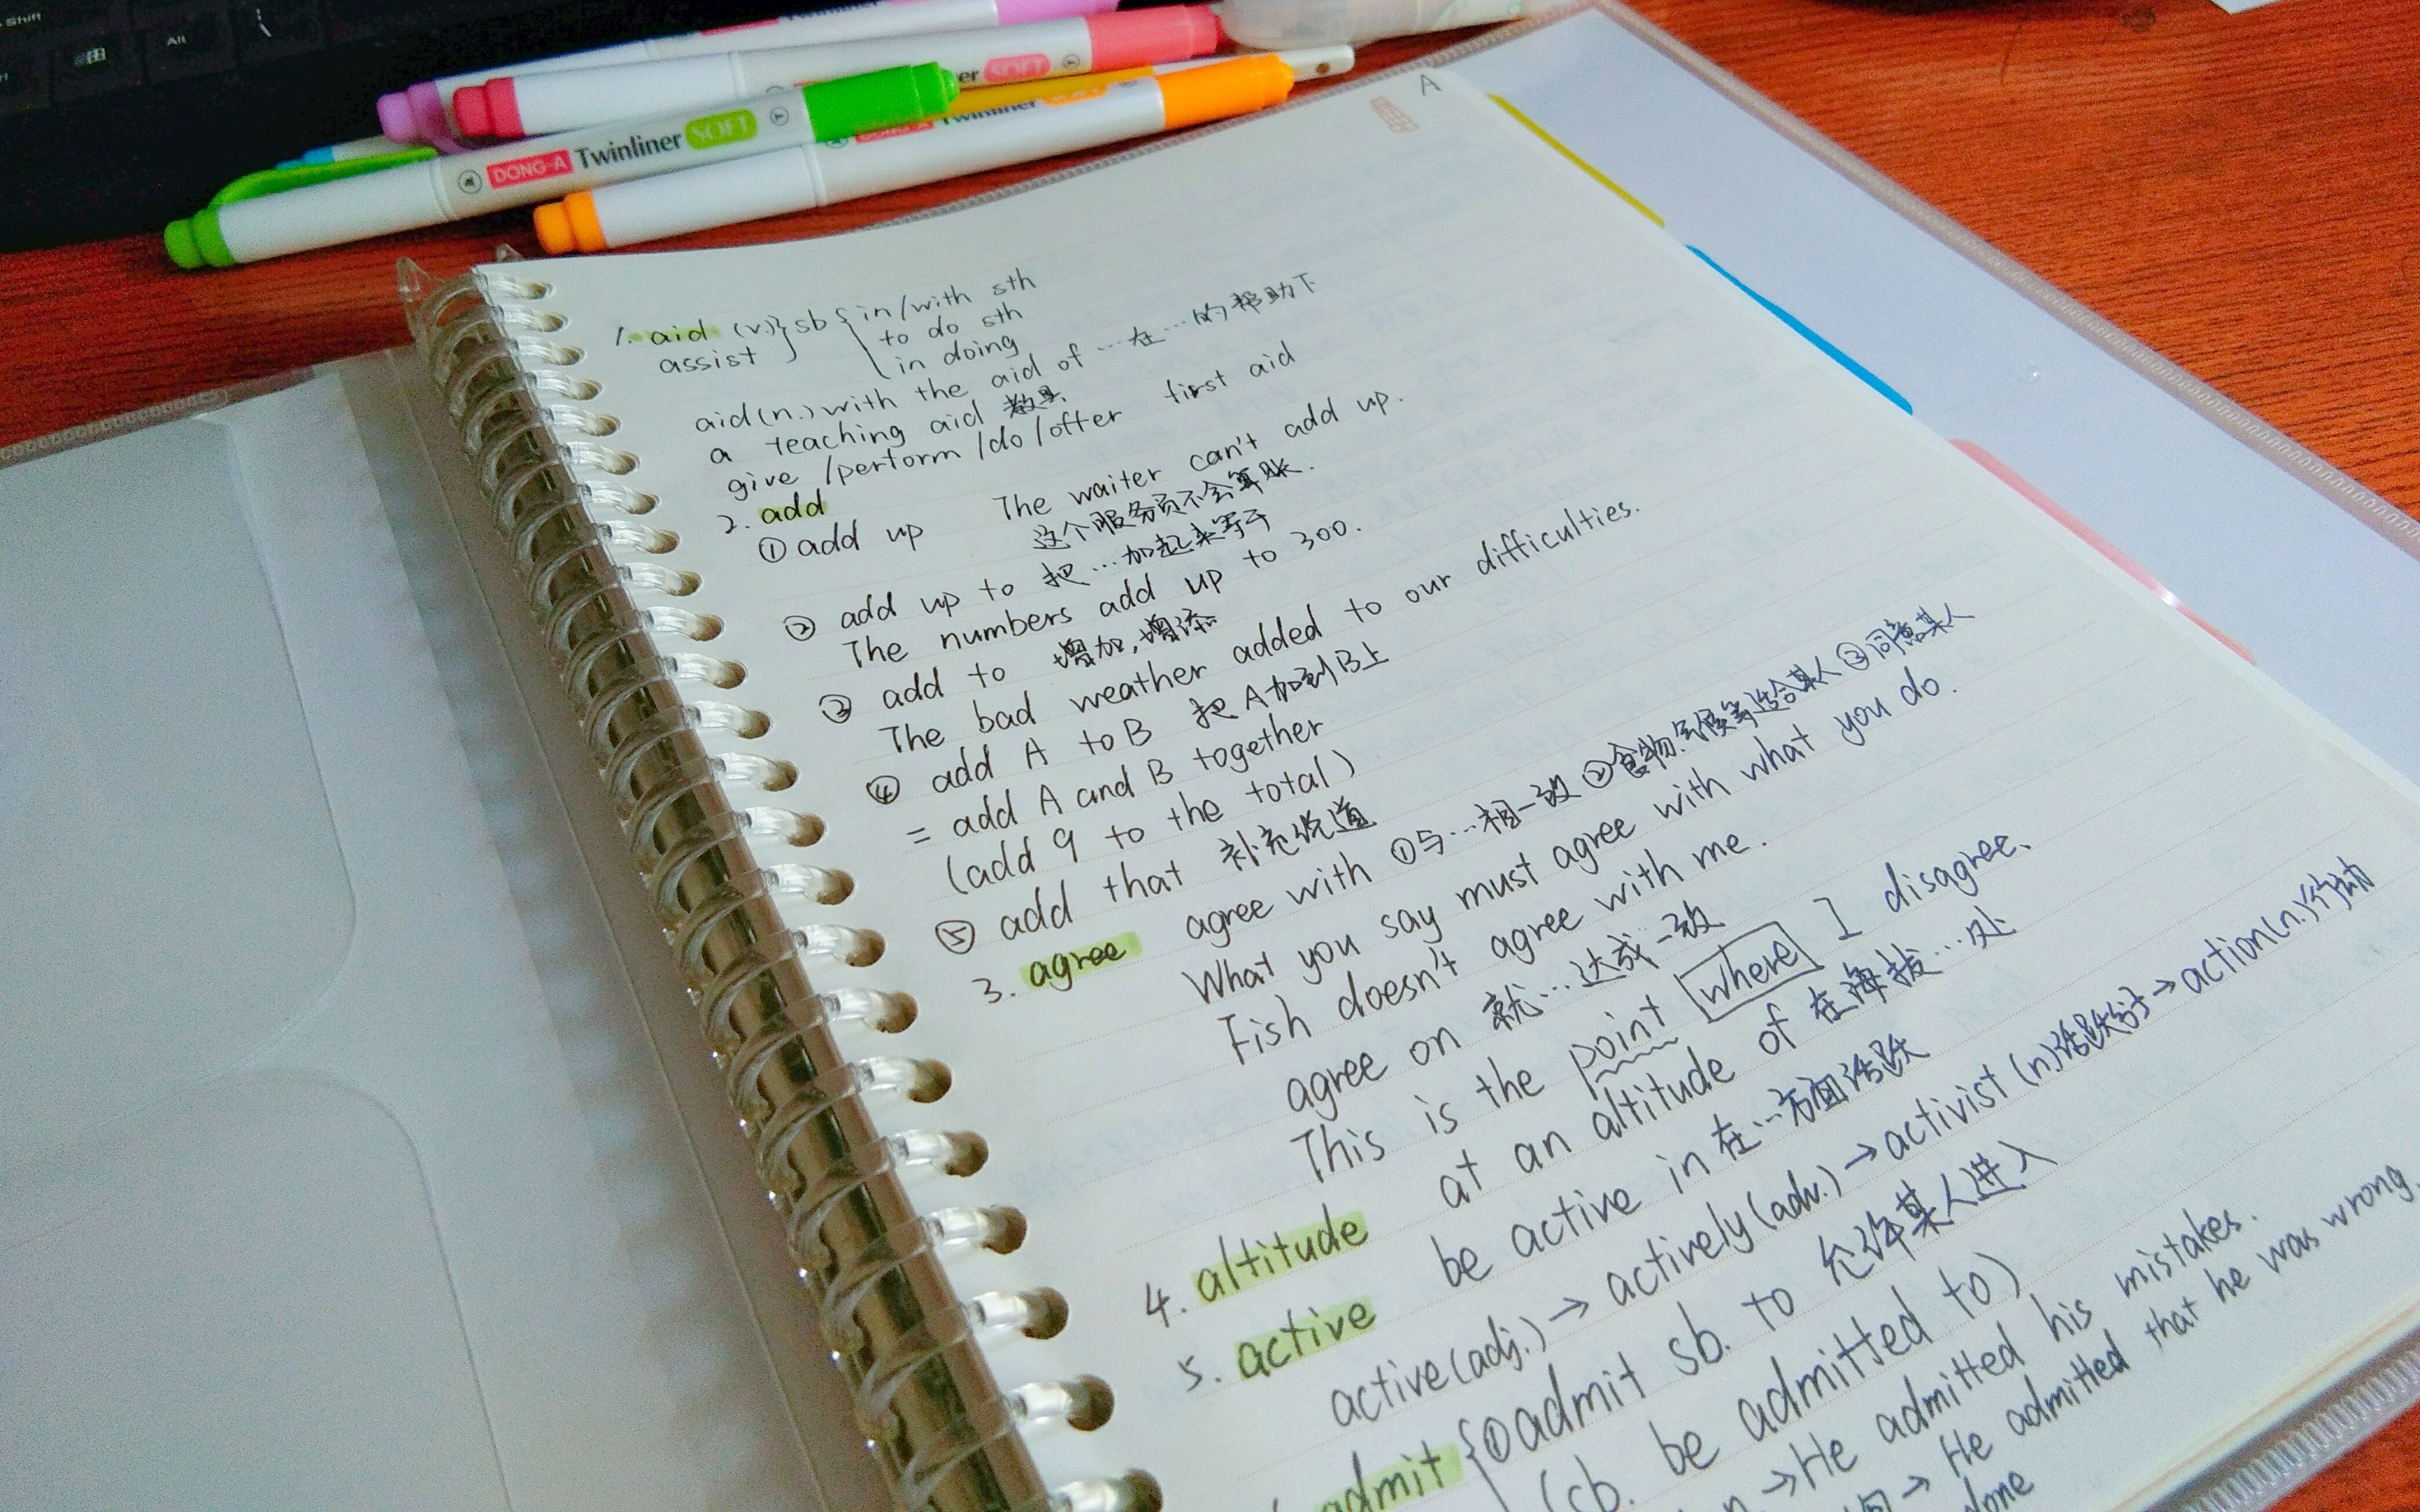 Shift
Alt
DONG-A Twinliner SOFT
DONG-A Twinliner
A
1. aid (v.) } sb { in/with sth
assist to do sth
in doing
aid (n.) with the aid of … 在…的帮助下
a teaching aid 教具
give /perform /do /offer first aid
2. add
① add up The waiter can't add up.
这个服务员不会算账.
② add up to 把…加起来等于
The numbers add up to 300.
③ add to 增加,增添
The bad weather added to our difficulties.
④ add A to B 把A加到B上
= add A and B together
(add 9 to the total)
⑤ add that 补充说道
3. agree agree with ①与…相一致 ②食物.气候等适合某人 ③同意某人
What you say must agree with what you do.
Fish doesn't agree with me.
agree on 就…达成一致
This is the point where I disagree.
4. altitude at an altitude of 在海拔…处
5. active be active in 在…方面活跃
active (adj.) → actively (adv.) → activist (n) 活跃分子 → action (n.) 行动
admit { ① admit sb. to 允许某人进入
(sb. be admitted to)
→ He admitted his mistakes.
→ He admitted that he was wrong.
done